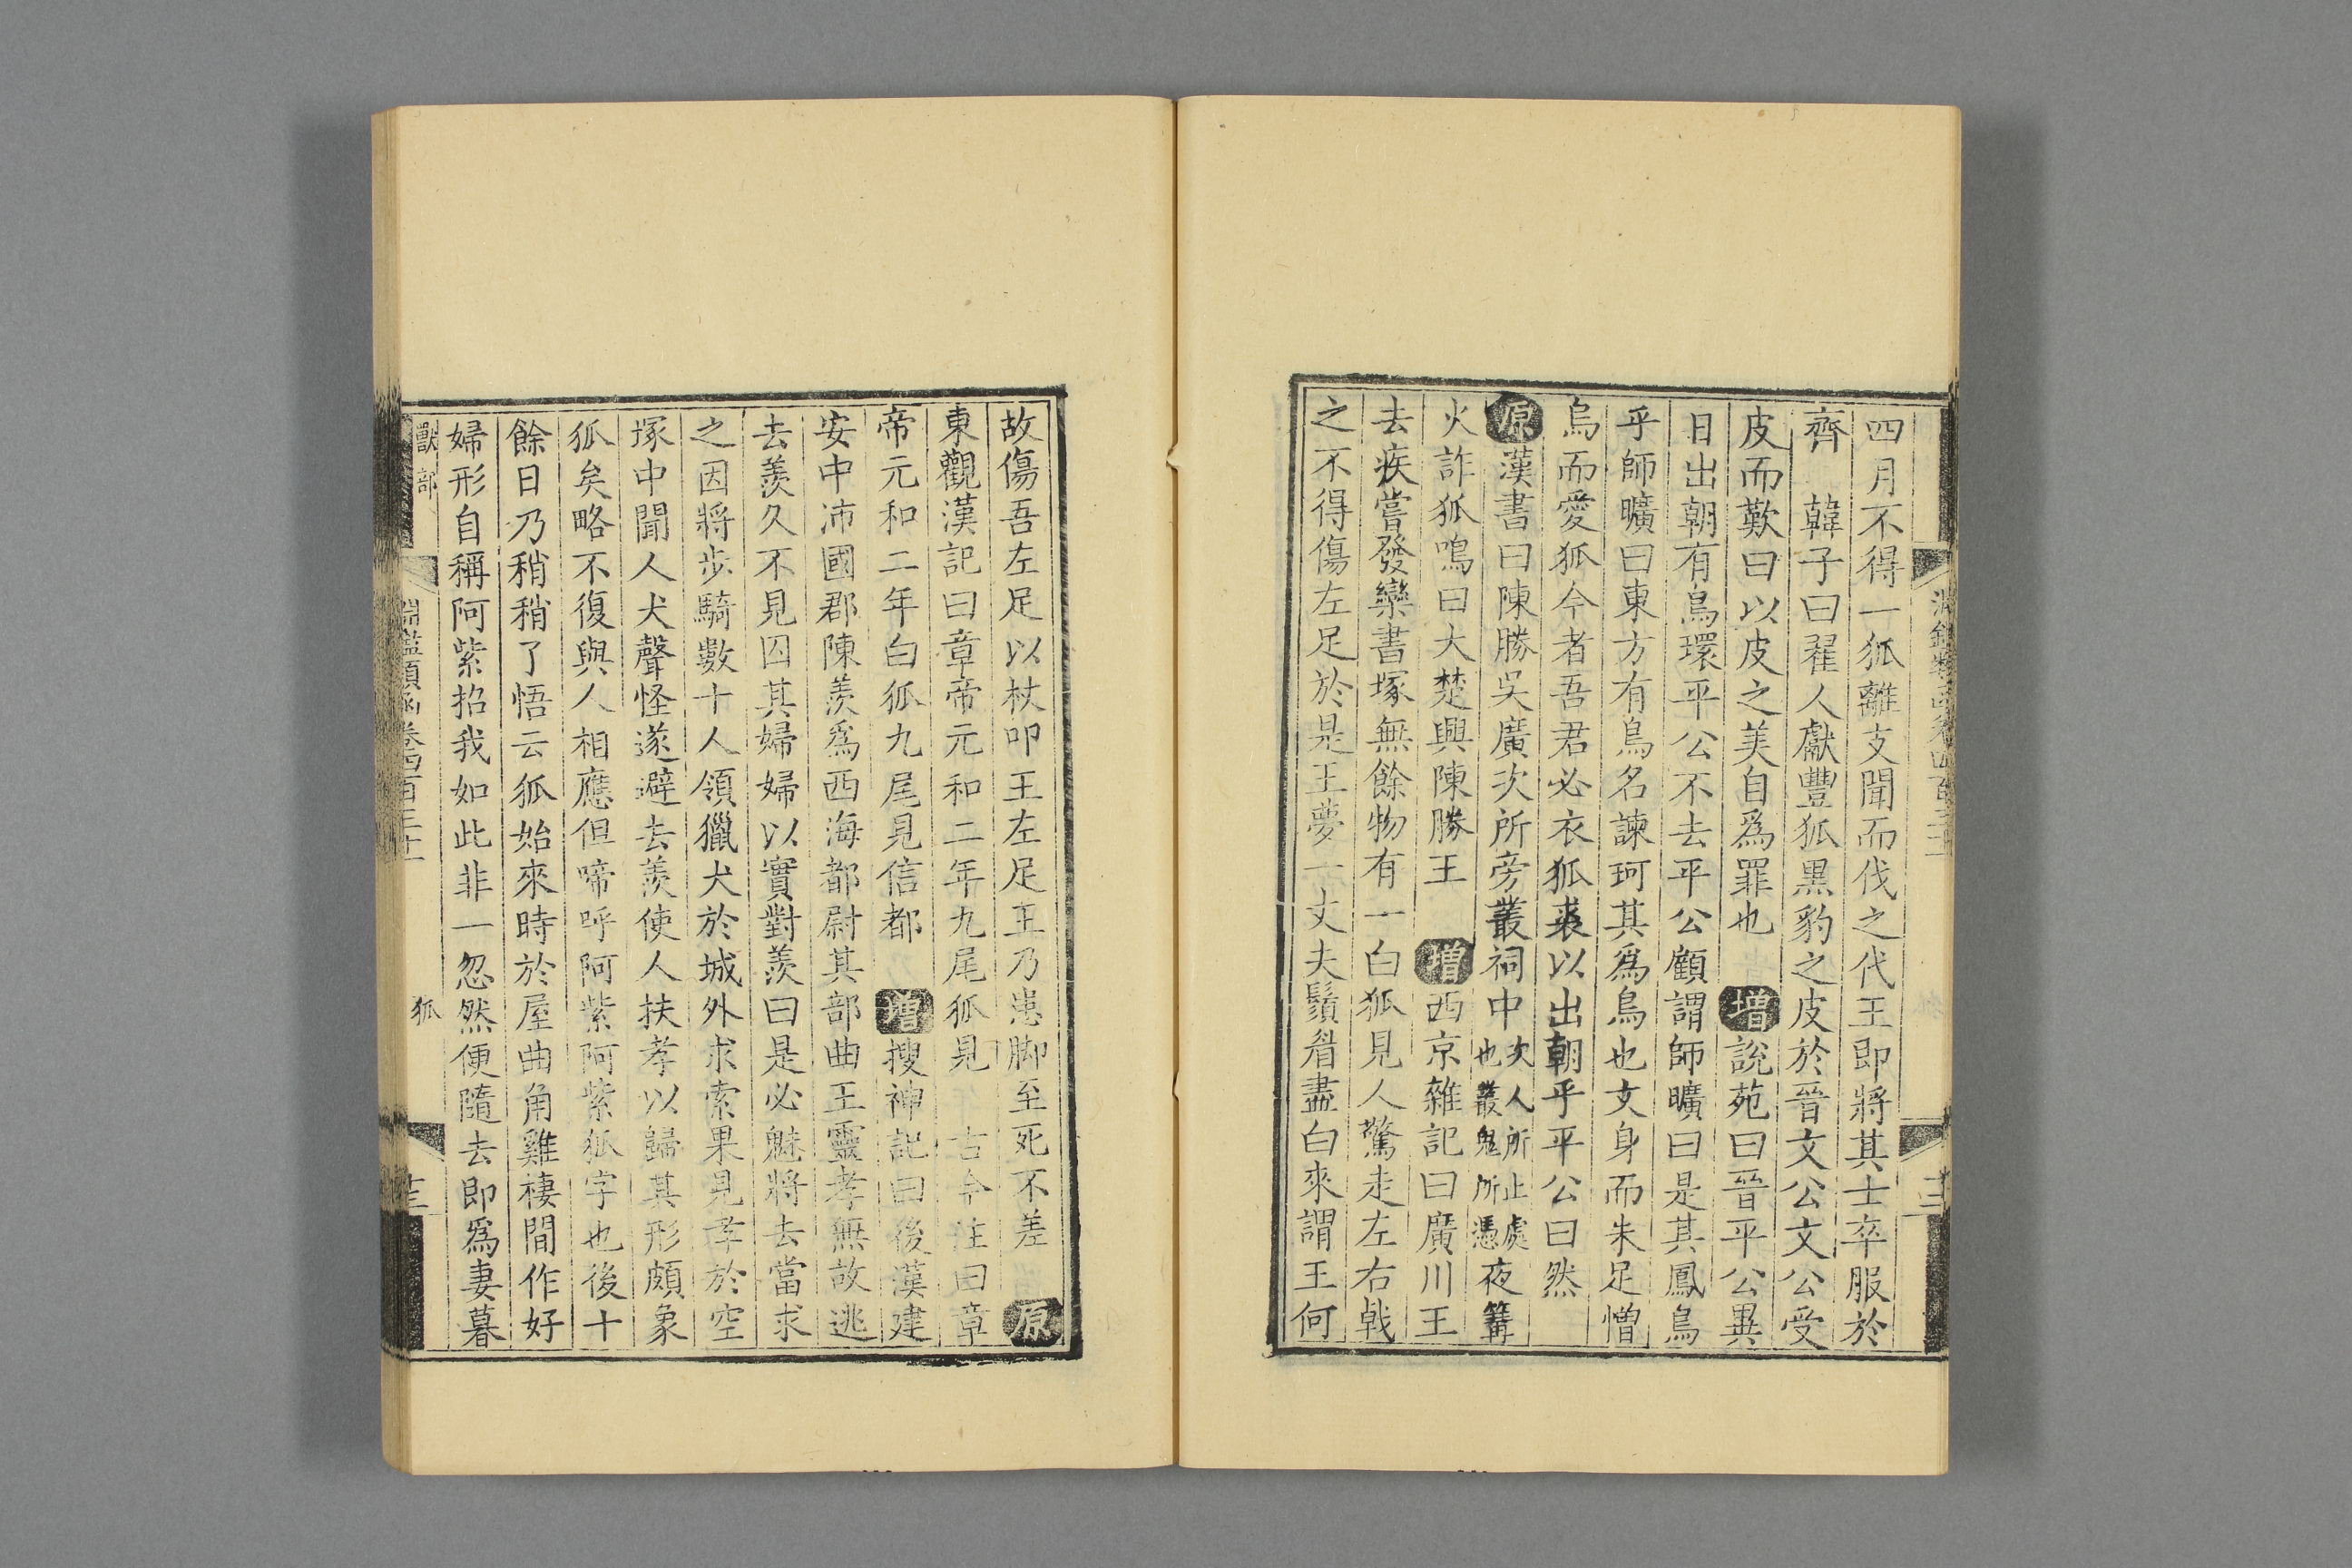 四月不得一狐離支聞而伐之代王即將其士卒服於
齊　韓子曰翟人獻豐狐黑豹之皮於晉文公文公受
皮而歎曰以皮之美自爲罪也　增說苑曰晉平公異
日出朝有鳥環平公不去平公顧謂師曠曰是其鳳鳥
乎師曠曰東方有鳥名諫珂其爲鳥也文身而朱足憎
鳥而愛狐今者吾君必衣狐裘以出朝乎平公曰然
原漢書曰陳勝吳廣次所旁叢祠中次人所止處也叢鬼所憑夜篝
火詐狐鳴曰大楚興陳勝王　增西京雜記曰廣川王
去疾嘗發欒書塚無餘物有一白狐見人驚走左右戟
之不得傷左足於是王夢一丈夫鬚眉盡白來謂王何
故傷吾左足以杖叩王左足王乃患脚至死不差　原
東觀漢記曰章帝元和二年九尾狐見　古今注曰章
帝元和二年白狐九尾見信都　增搜神記曰後漢建
安中沛國郡陳羨爲西海都尉其部曲王靈孝無故逃
去羨久不見囚其婦婦以實對羨曰是必魅將去當求
之因將步騎數十人領獵犬於城外求索果見孝於空
塚中聞人犬聲怪遂避去羨使人扶孝以歸其形頗象
狐矣略不復與人相應但啼呼阿紫阿紫狐字也後十
餘日乃稍稍了悟云狐始來時於屋曲角雞棲間作好
婦形自稱阿紫招我如此非一忽然便隨去即爲妻暮
獸部
淵鑑類函卷四百三十一
狐